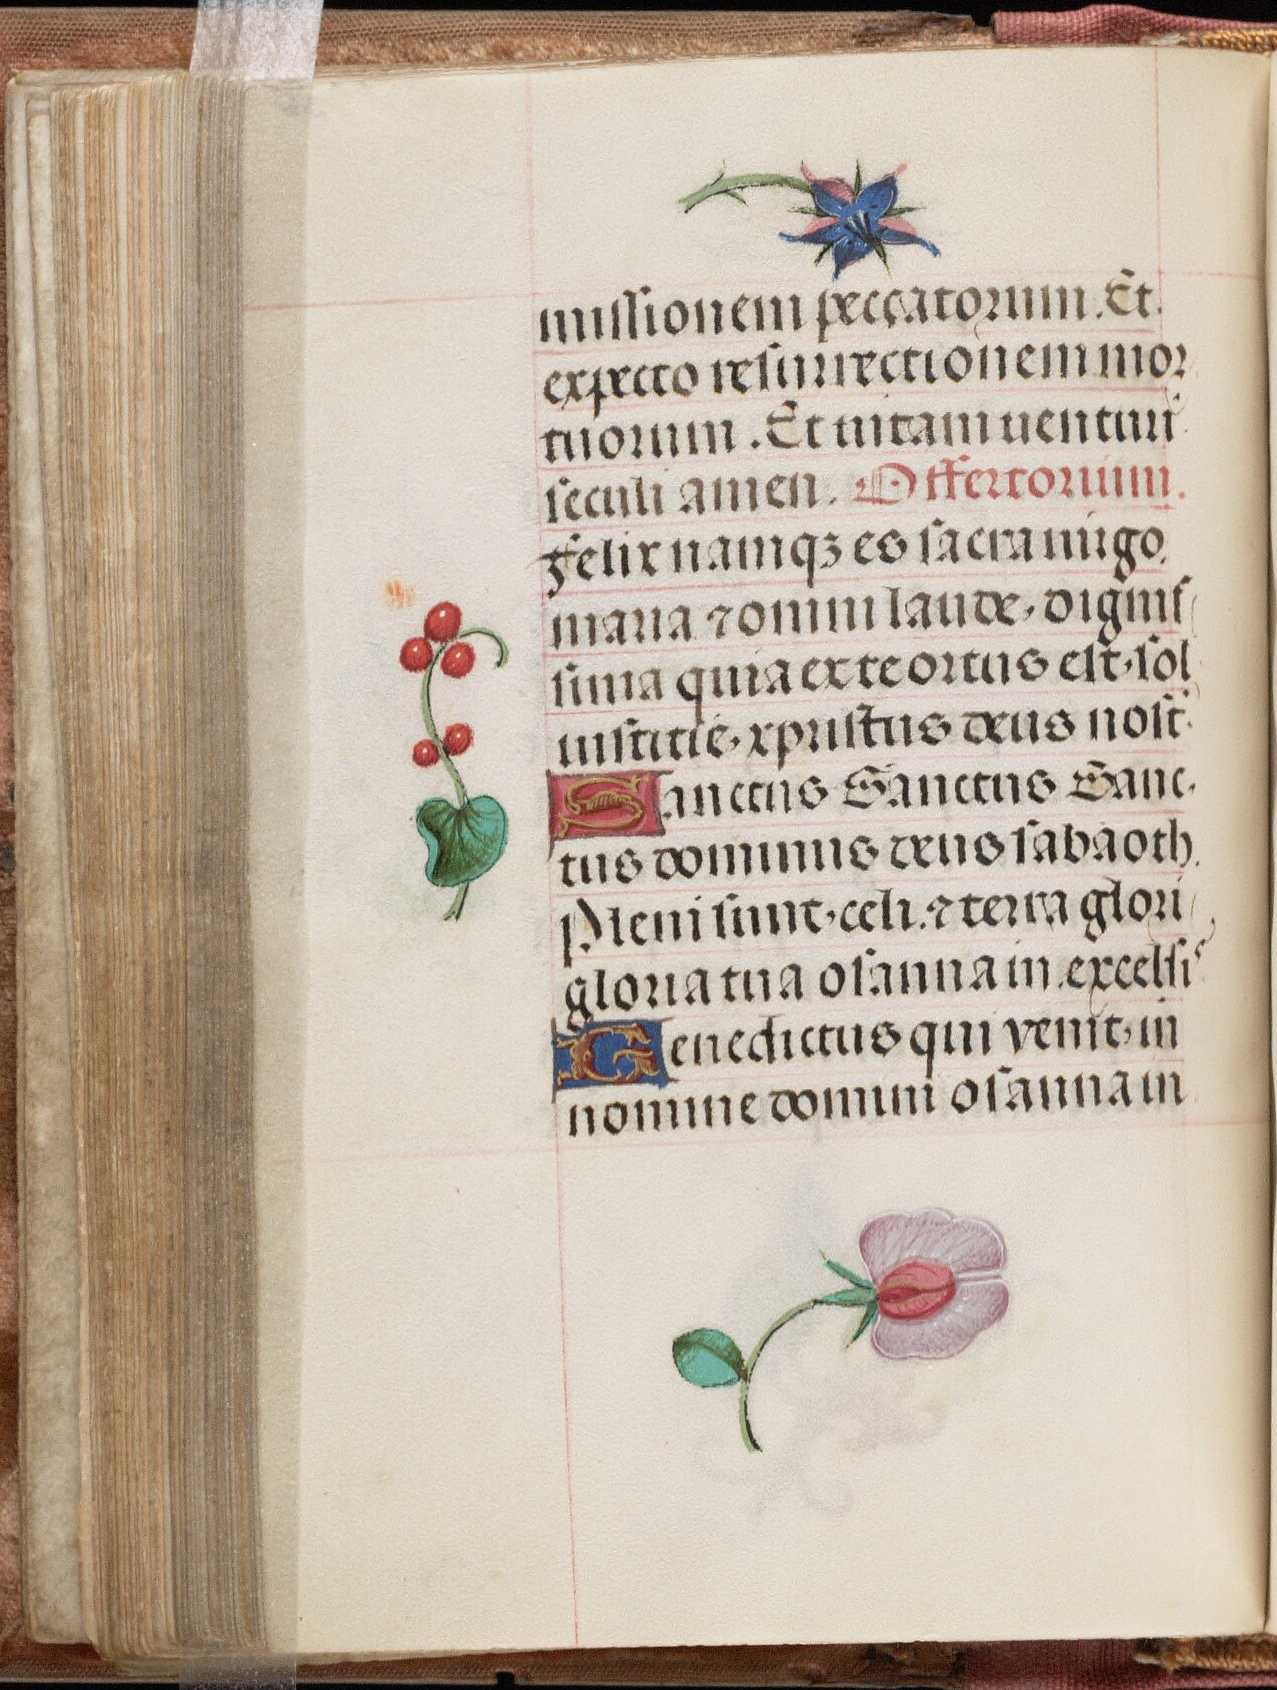 missionem peccatorum. Et
expecto resurrectionem mor
tuorum. Et uitam uenturi
seculi amen. Offertorium.
Felix namqꝫ es sacra uirgo
maria ⁊ omni laude, dignis
sima quia ex te ortus est, sol
iusticie, xpristus deus nost
Sanctus Sanctus Sanc
tus dominus deus sabaoth.
Pleni sunt, celi. ⁊ terra glori
gloria tua osanna in excelsis
Benedictus qui venit, in
nomine domini osanna in